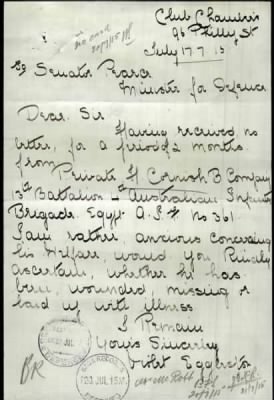 Club Chambers
96 Phillip St
July 17 7. 15
no cas
20/7/15
To Senator Pearce
Minister for Defence
Dear Sir
Having received no
letter, for a period of 2 months.
from
Private H Cornish B Company
13th Battalion Australian Infantry
Brigade Egypt A.I.F. No 361.
I am rather, anxious concerning
his Welfare, would you Kindly
ascertain, whether he has
been, wounded, missing or
laid up with illness
I Remain
Yours Sincerely
Violet
BR
JUL
20 JUL 1915
20/7/15
21/7/15